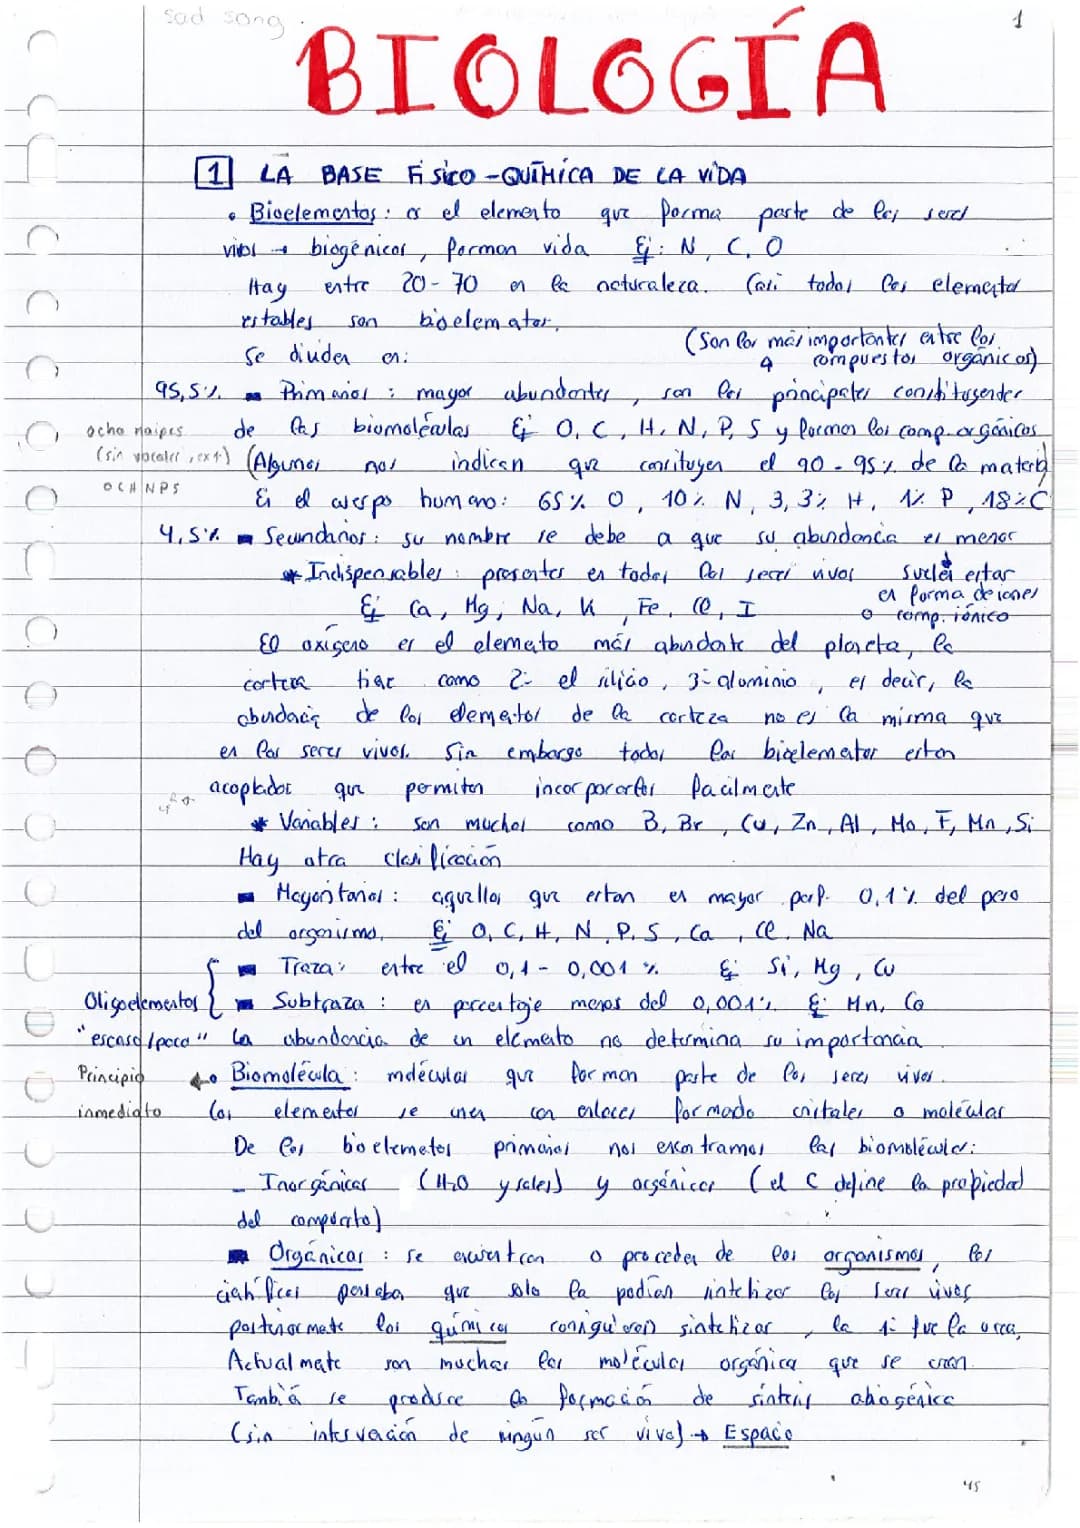 sad song
1
BIOLOGÍA
1 LA BASE FÍSICO-QUÍMICA DE LA VIDA
• Bioelementos: es el elemento que forma parte de los seres
vivos → biogénicos, forman vida Ej: N, C, O
Hay entre 20-70 en la naturaleza. Casi todos los elementos
estables son bioelementos.
(Son los más importantes entre los
compuestos orgánicos)
Se dividen en:
95,5% Primarios: mayor abundantes, son los principales constituyentes
ocho naipes
(sin vocales, ext)
OCHNPS
de las biomoléculas Ej O, C, H, N, P, S y forman los comp. orgánicos
(Algunos nos indican que constituyen el 90-95% de la materia)
En el cuerpo humano: 65% O, 10% N, 3,3% H, 1% P, 18% C
4,5% Secundarios: su nombre se debe a que su abundancia es menor
* Indispensables: presentes en todos los seres vivos
Suelen estar
en forma de iones
o comp. iónico
Ej Ca, Mg, Na, K, Fe, Cl, I
El oxígeno es el elemento más abundante del planeta, la
corteza tiene como 2º el silicio, 3º aluminio, es decir, la
abundancia de los elementos de la corteza no es la misma que
en los seres vivos. Sin embargo todos los bioelementos estan
acoplados que permiten incorporarlos facilmente
* Variables: son muchos como B, Br, Cu, Zn, Al, Mo, F, Mn, Si
Hay otra clasificación
Mayoritarios: aquellos que estan en mayor porp. 0,1% del peso
del organismo. Ej O, C, H, N, P, S, Ca, Cl, Na
Traza: entre el 0,1 - 0,001 % Ej Si, Mg, Cu
Oligoelementos { Subtraza: en porcentaje menos del 0,001% Ej: Mn, Co
"escaso/poco" La abundancia de un elemento no determina su importancia
Principio
inmediato
Biomolécula: moléculas que forman parte de los seres vivos.
Los elementos se unen con enlaces formado cristales o moléculas
De los bioelemetos primarios nos encontramos las biomoléculas:
- Inorgánicas (H2O y sales) y orgánicas (el C define la propiedad
del compuesto)
Orgánicas: se encuentran o proceden de los organismos, los
científicos pensaban que solo la podían sintetizar los seres vivos
posteriormente los químicos consiguieron sintetizar, la 1ª fue la urea,
Actualmente son muchas las moléculas orgánica que se crean.
También se produce la formación de síntesis abiogénica
(sin intervención de ningún ser vivo) → Espacio